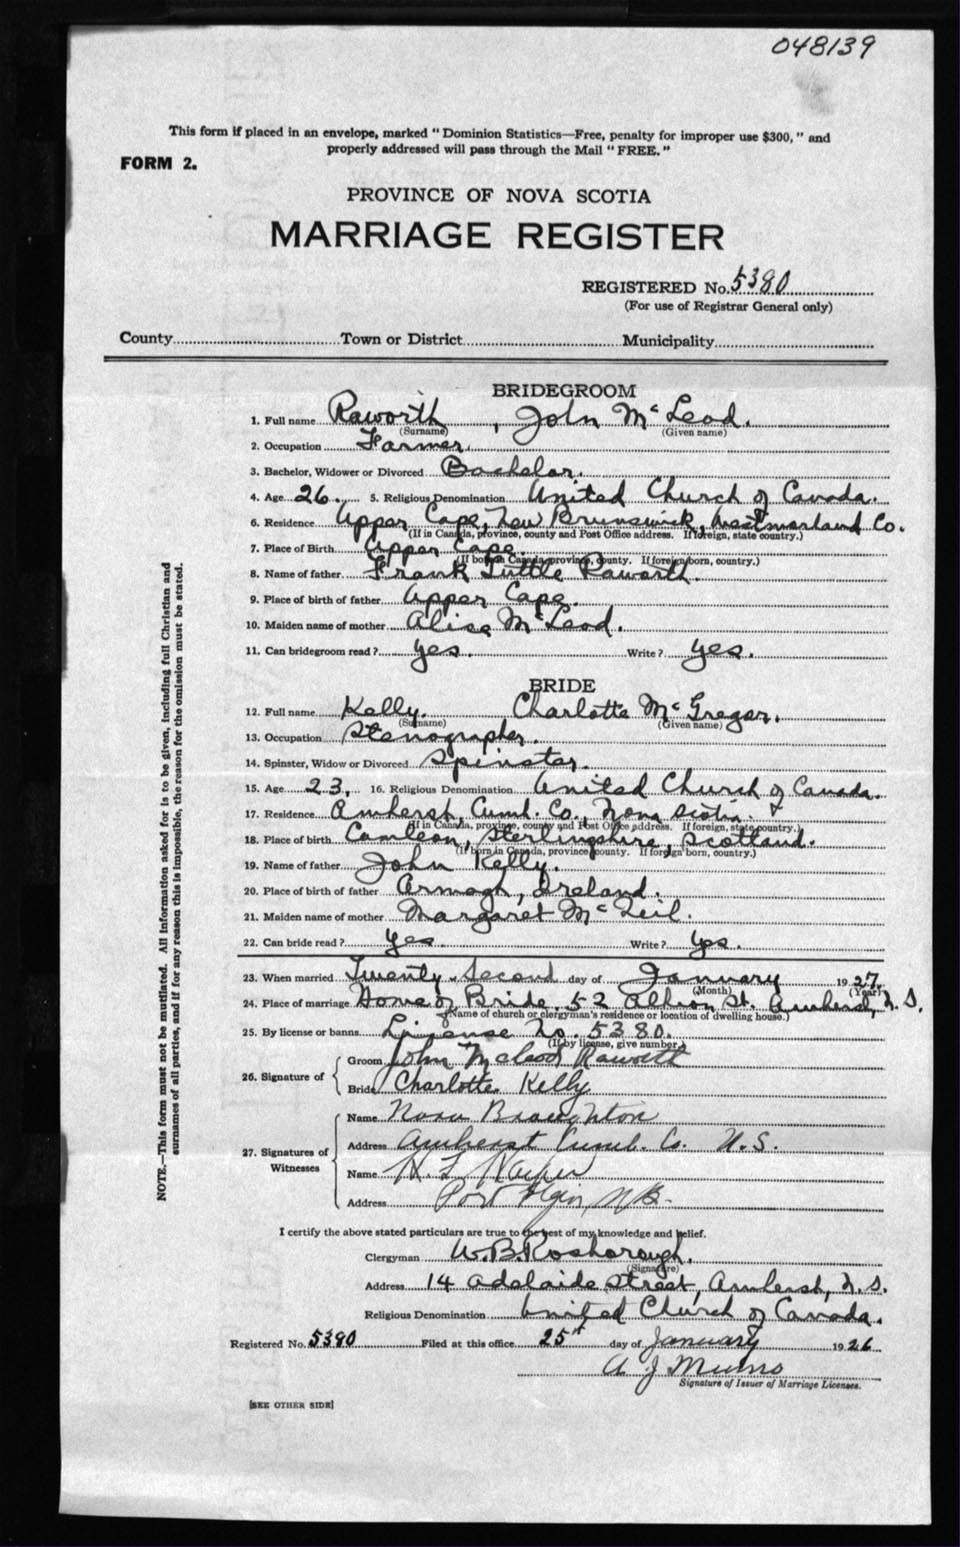 048139
This form if placed in an envelope, marked "Dominion Statistics—Free, penalty for improper use $300," and
properly addressed will pass through the Mail "FREE."
FORM 2.
PROVINCE OF NOVA SCOTIA
MARRIAGE REGISTER
REGISTERED No. 5380
(For use of Registrar General only)
County Town or District Municipality
BRIDEGROOM
1. Full name Raworth, John McLeod.
(Surname) (Given name)
2. Occupation Farmer.
3. Bachelor, Widower or Divorced Bachelor.
4. Age 26. 5. Religious Denomination United Church of Canada.
6. Residence Upper Cape, New Brunswick, Westmorland Co.
(If in Canada, province, county and Post Office address. If foreign, state country.)
7. Place of Birth Upper Cape.
(If born in Canada, province, county. If foreign born, country.)
8. Name of father Frank Tuttle Raworth
9. Place of birth of father Upper Cape.
10. Maiden name of mother Alice McLeod.
11. Can bridegroom read? Yes. Write? Yes.
BRIDE
12. Full name Kelly. Charlotte McGregor.
(Surname) (Given name)
13. Occupation Stenographer.
14. Spinster, Widow or Divorced Spinster.
15. Age 23. 16. Religious Denomination United Church of Canada.
17. Residence Amherst, Cumb. Co., Nova Scotia.
(If in Canada, province, county and Post Office address. If foreign, state country.)
18. Place of birth Sterlingshire, Scotland.
(If born in Canada, province, county. If foreign born, country.)
19. Name of father John Kelly.
20. Place of birth of father Armagh, Ireland.
21. Maiden name of mother Margaret McNeil.
22. Can bride read? Yes. Write? Yes.
23. When married Twenty-Second day of January 1927
(Month) (Year)
24. Place of marriage Home of Bride, 52 Albion St. Amherst, N.S.
(Name of church or clergyman's residence or location of dwelling house.)
25. By license or banns License No. 5380.
(If by license, give number.)
26. Signature of Groom John McLeod Raworth
Bride Charlotte Kelly
27. Signatures of Witnesses Name Nora Broughton
Address Amherst Cumb. Co. N.S.
Name H L
Address Port Elgin, N.B.
I certify the above stated particulars are true to the best of my knowledge and belief.
Clergyman W.B. Rosborough.
(Signature)
Address 14 Adelaide Street, Amherst, N.S.
Religious Denomination United Church of Canada.
Registered No. 5380 Filed at this office 25th day of January 1926
A J Munro
Signature of Issuer of Marriage Licenses.
[SEE OTHER SIDE]
NOTE.—This form must not be mutilated. All information asked for is to be given, including full Christian and
surnames of all parties, and if for any reason this is impossible, the reason for the omission must be stated.